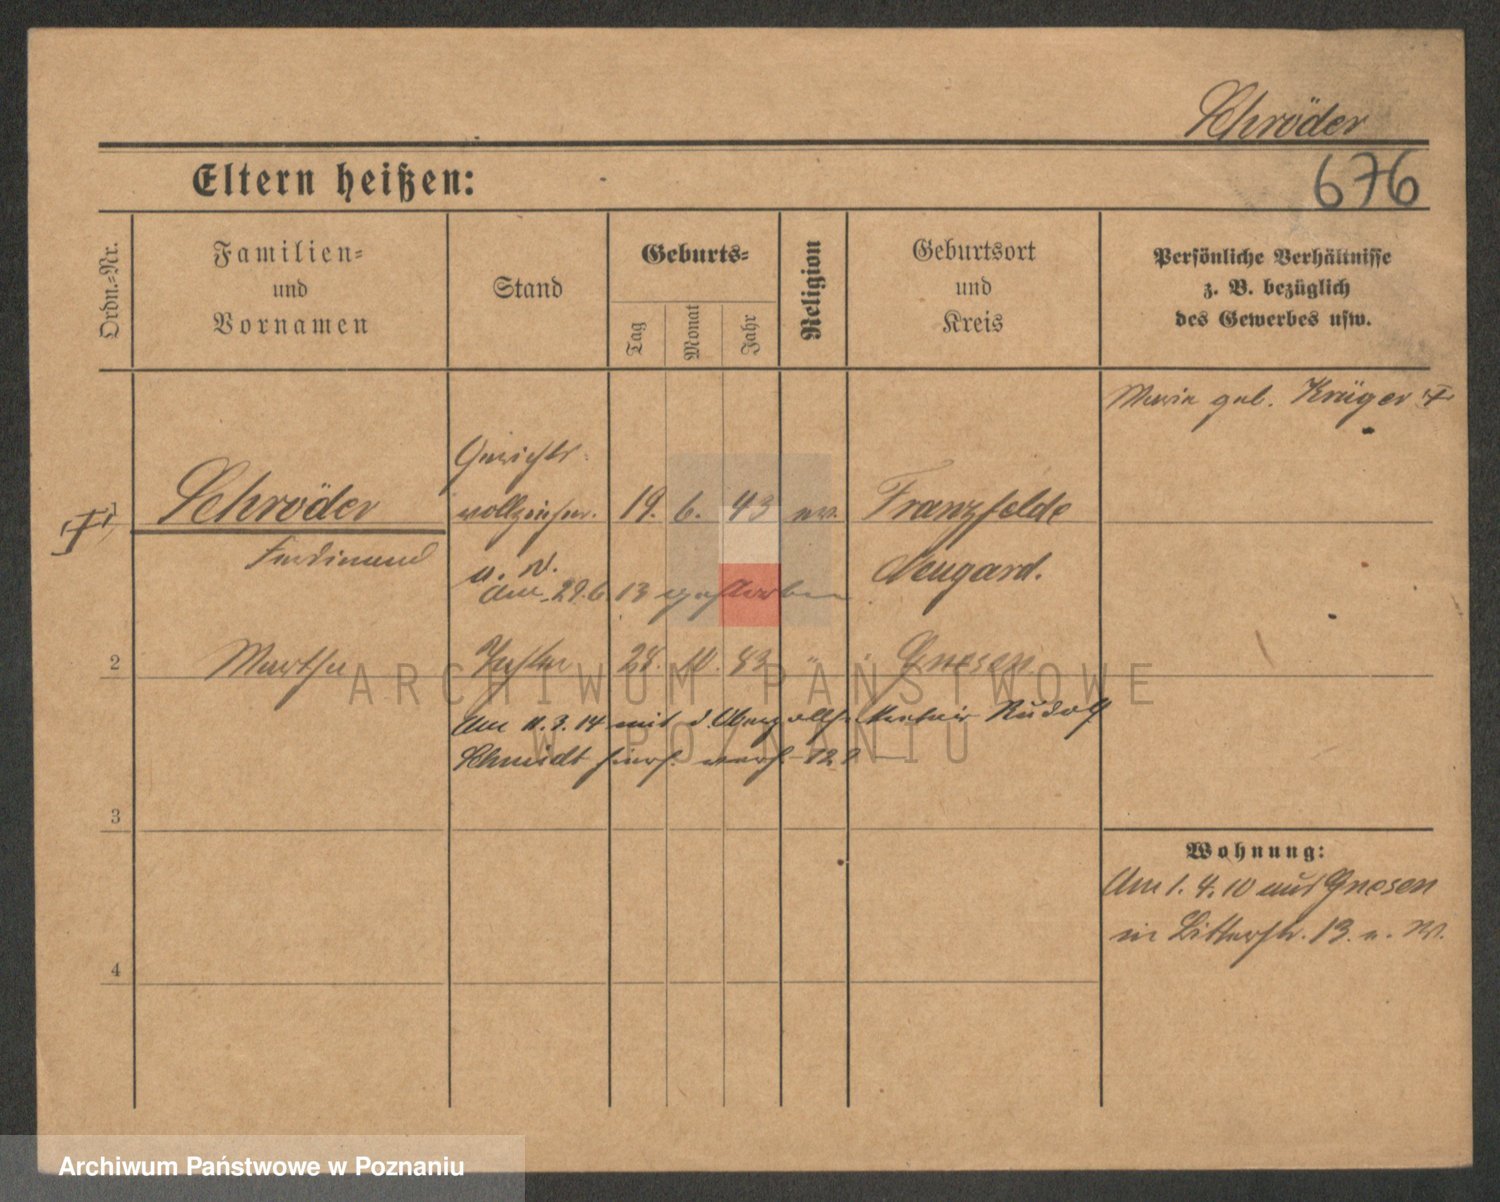 Schröder
676
Eltern heißen:
Ordn.-Nr.
Familien-
und
Vornamen
Stand
Geburts-
Tag
Monat
Jahr
Religion
Geburtsort
und
Kreis
Persönliche Verhältnisse
z. B. bezüglich
des Gewerbes usw.
Maria geb. Krüger †
1
Schröder
Ferdinand
Gerichts-
vollzieher.
19. 6. 43 ev.
Franzfelde
Naugard.
Am 29.6 13 gestorben
2
Martha
Tochter
28. 10. 83 "
Gnesen
Am 11.3.14 mit d. Rudolf
Schmidt hier verh.
3
4
Wohnung:
Am 1. 4. 10 aus Gnesen
in Ritterstr. 13.
ARCHIWUM PAŃSTWOWE
W POZNANIU
Archiwum Państwowe w Poznaniu